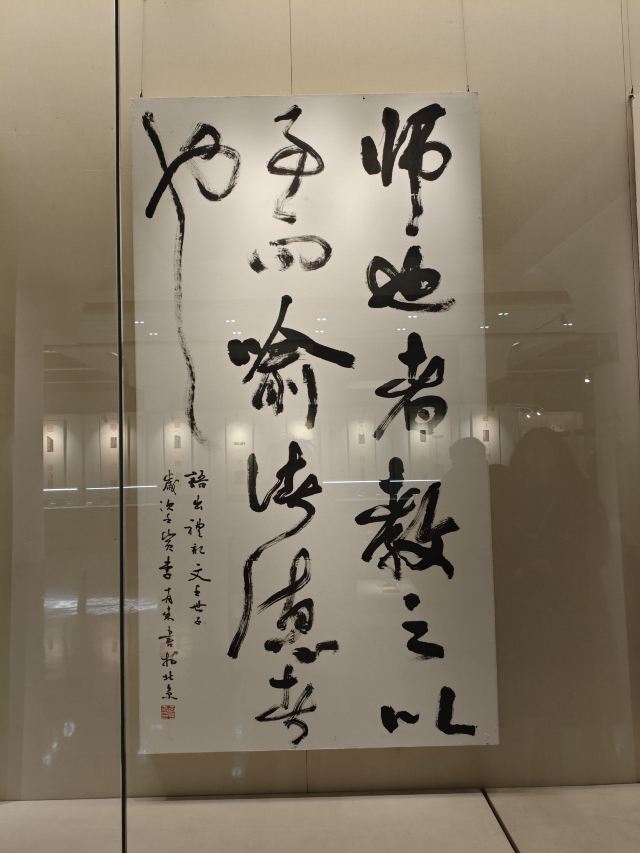 师也者教之以
事而喻诸德者
也
語出禮記文王世子
歲次壬寅李有来書於北京